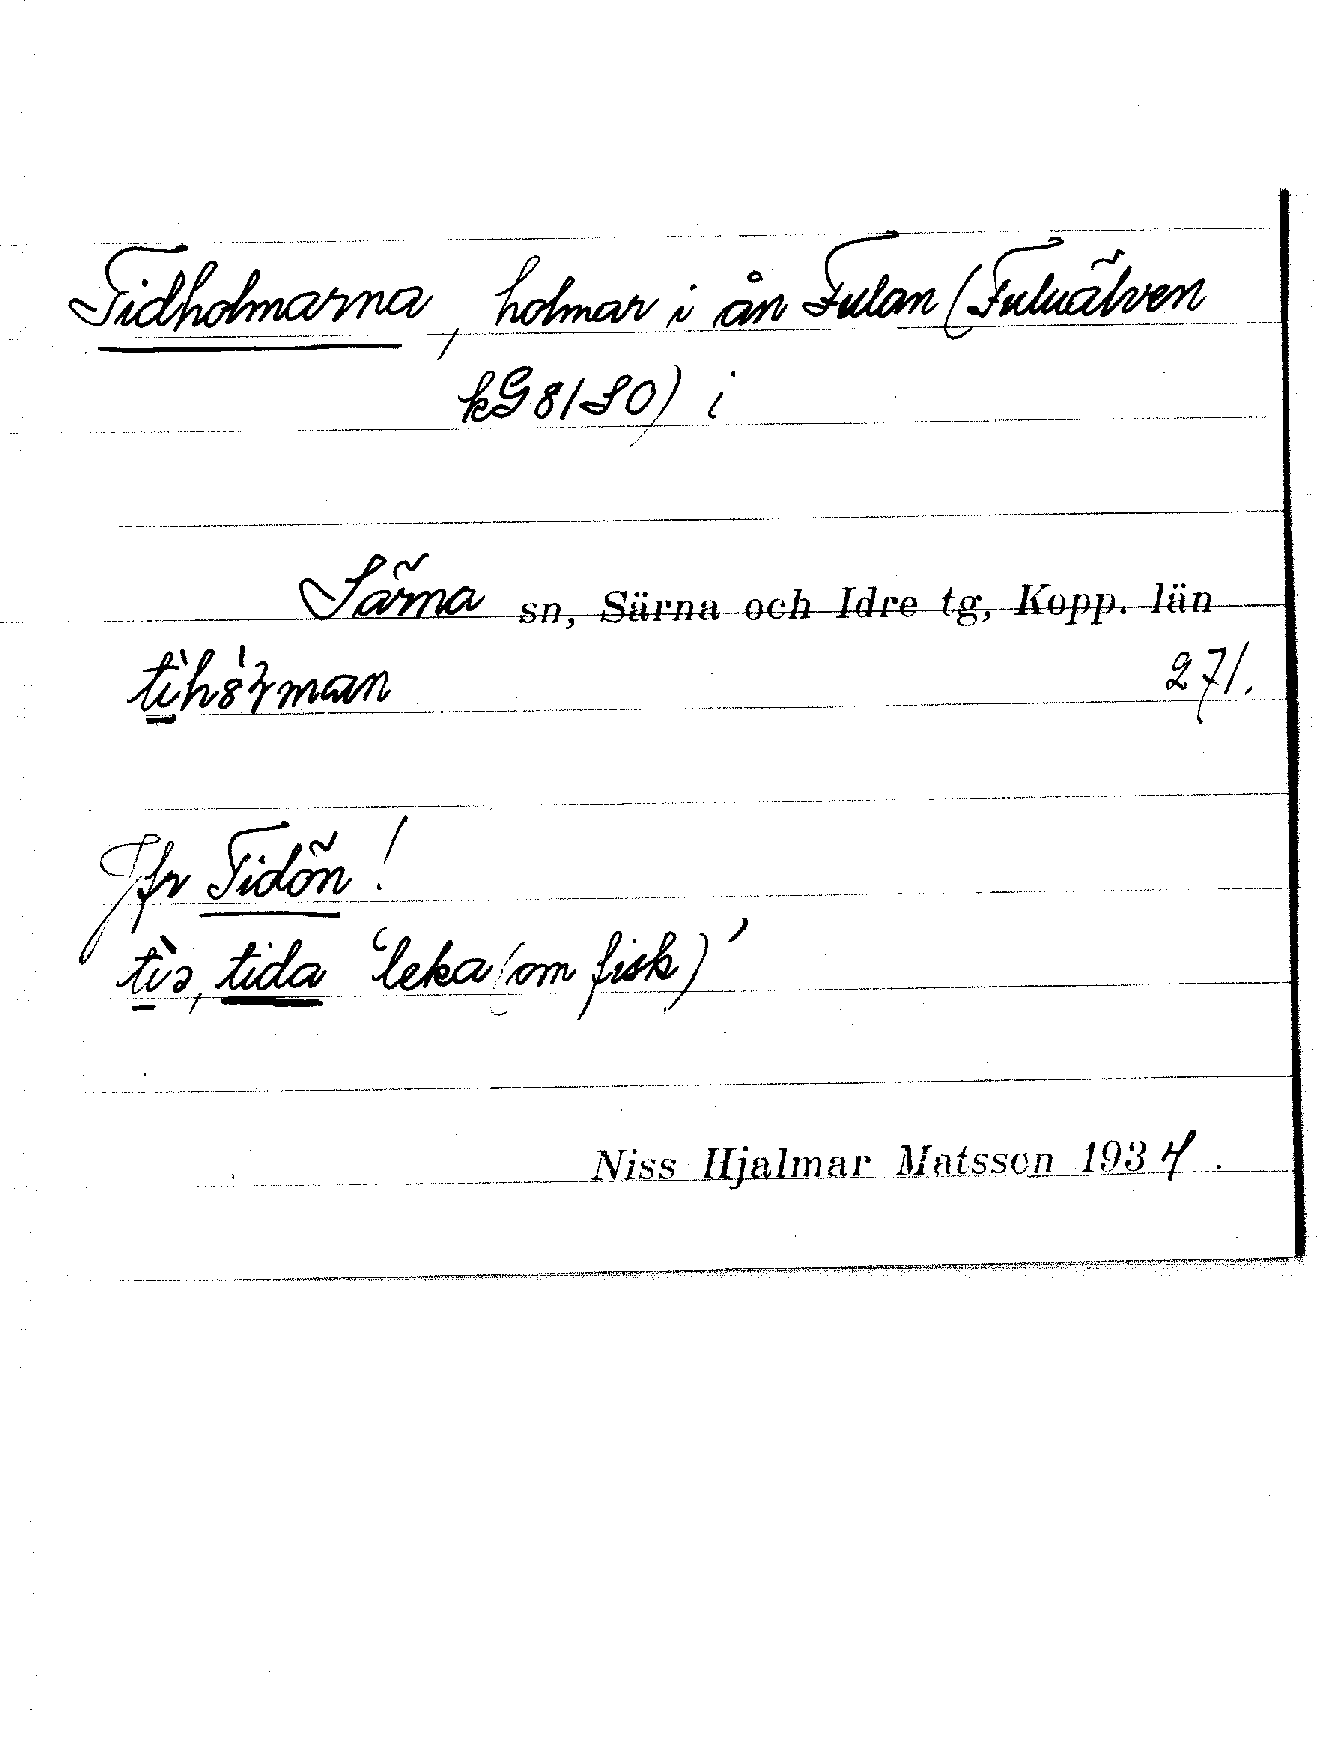 Tidholmarna, holmar i ån Fulan (Fuluälven
kG 81SO) i
Särna sn, Särna och Idre tg, Kopp. län
271.
Jfr Tidön!
tìə, tida 'leka (om fisk)'
Niss Hjalmar Matsson 1934.